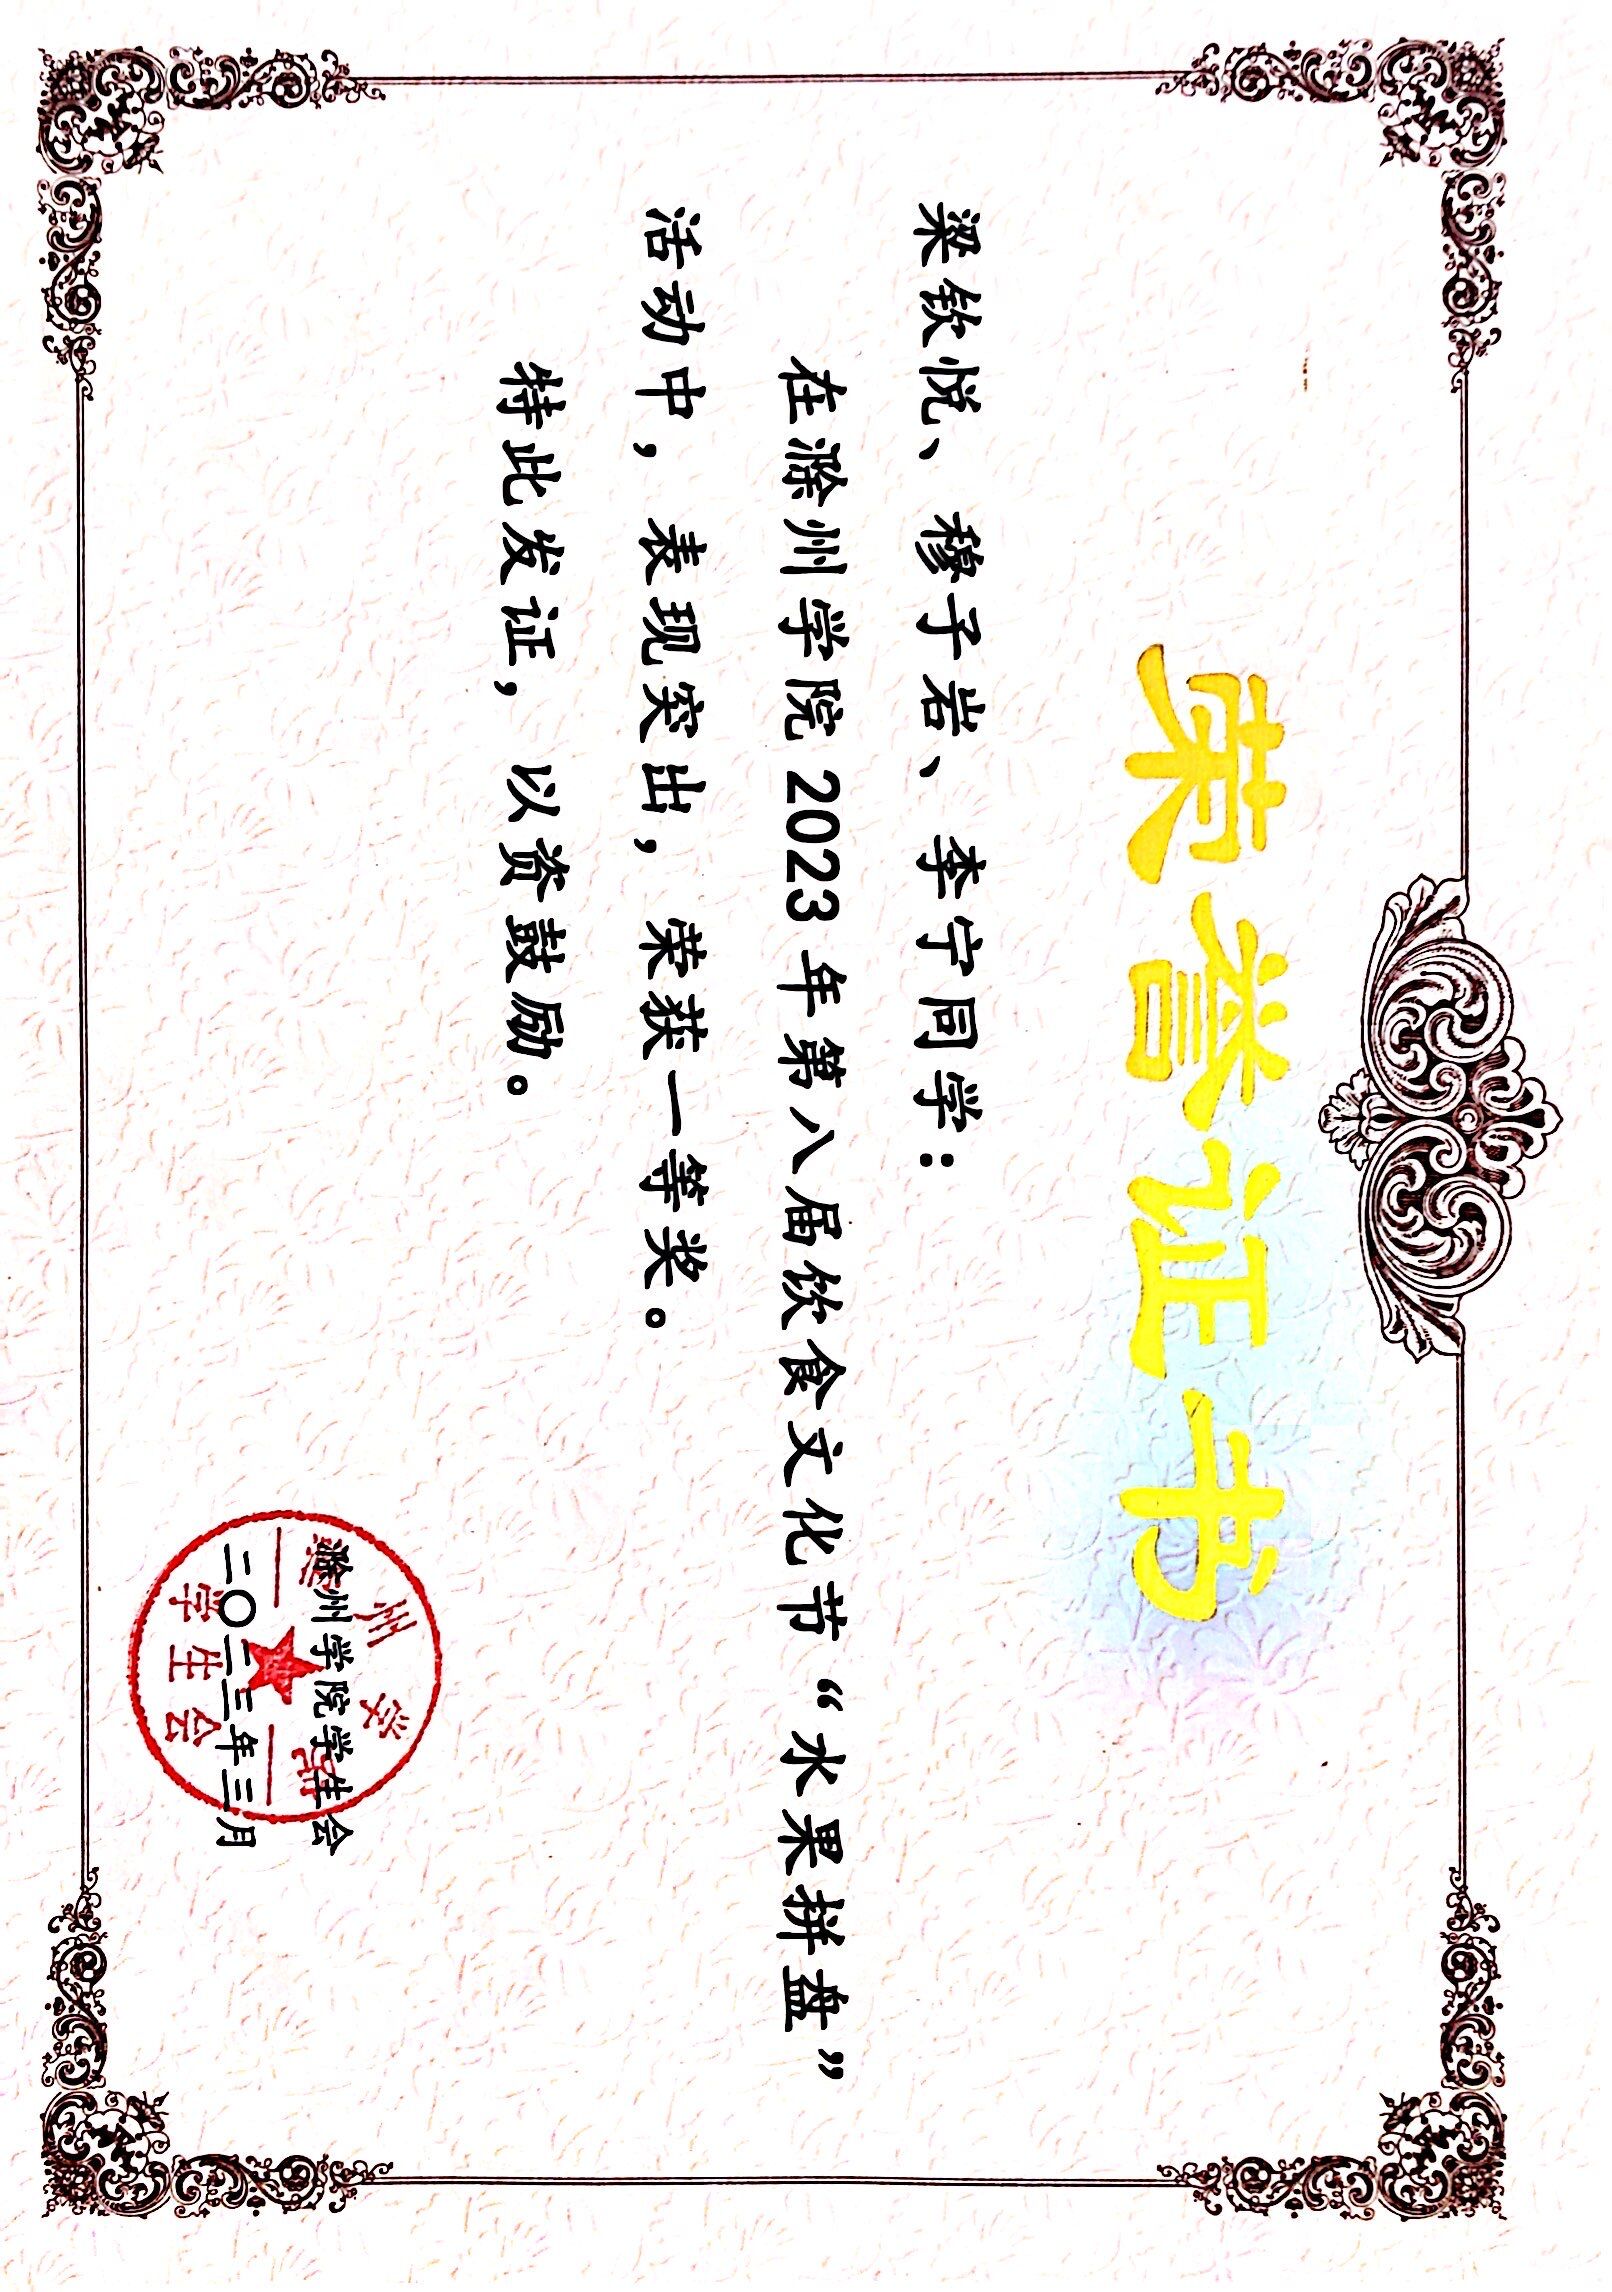 荣誉证书
梁钦悦、穆子岩、李宁同学：
在滁州学院2023年第八届饮食文化节“水果拼盘”
活动中，表现突出，荣获一等奖。
特此发证，以资鼓励。
滁州学院学生会
二〇二三年三月
滁州学院
学生会